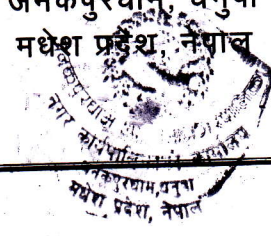 जनकपुरधाम, धनुषा
मधेश प्रदेश, नेपाल
नगर कार्यपालिका
जनकपुरधाम, धनुषा
मधेश प्रदेश, नेपाल